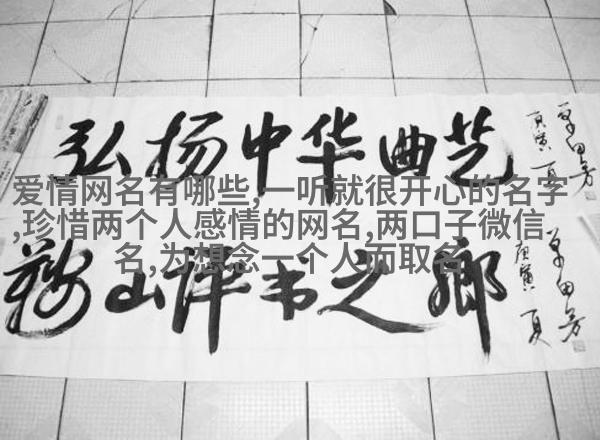 弘扬中华曲艺
庚寅 夏
单田芳
爱情网名有哪些,一听就很开心的名字
,珍惜两个人感情的网名,两口子微信
名,为想念一个人而取名
鞍山评书之鄉
庚寅 夏
单田芳